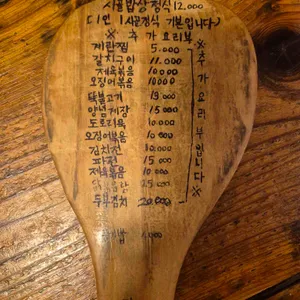 시골밥상정식 12.000
(1인 1시골정식 기본입니다)
※ 추가요리부 ※
계란찜 5.000
갈치구이 11.000
제육볶음 10000
오징어볶음 10000
닭불고기 13.000
양념게장 15.000
도토리묵 10.000
오징어볶음 10.000
김치전 10.000
파전 15.000
제육볶음 10.000
25.000
두부김치 20.000
추가요리부입니다※